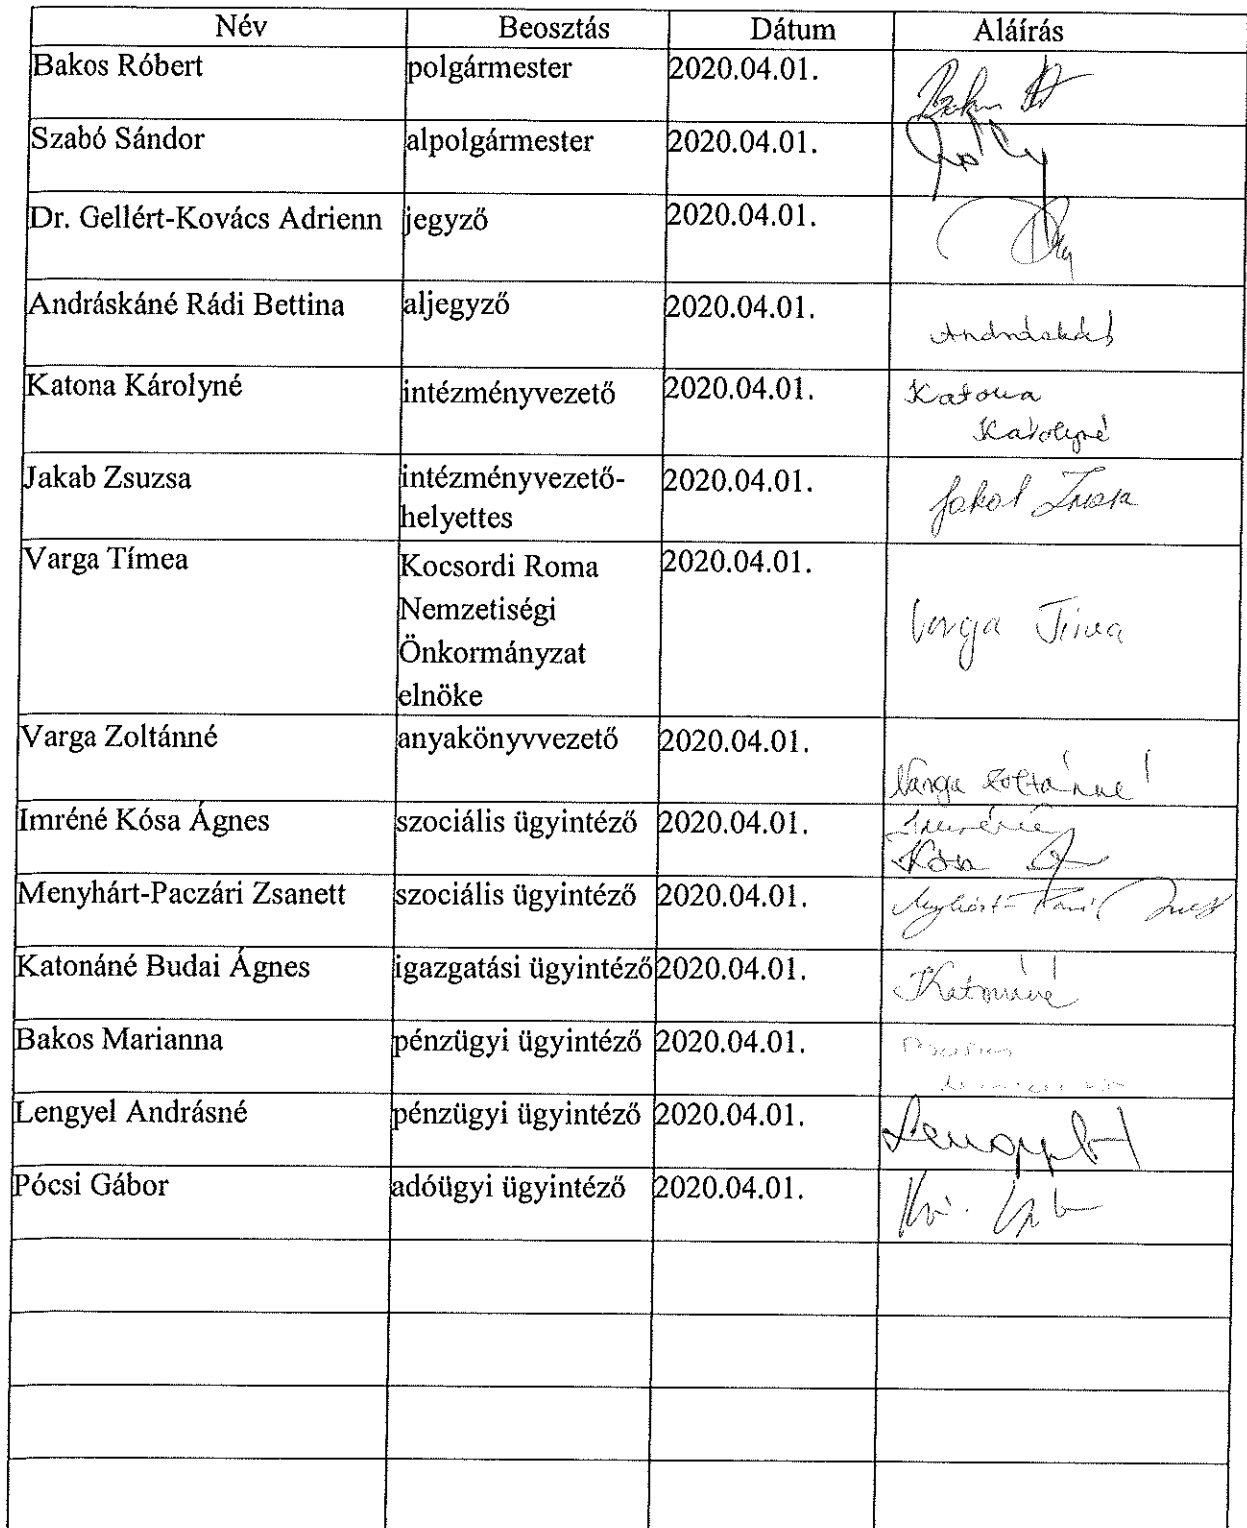 Név Beosztás Dátum Aláírás
Bakos Róbert polgármester 2020.04.01.
Szabó Sándor alpolgármester 2020.04.01.
Dr. Gellért-Kovács Adrienn jegyző 2020.04.01.
Andráskáné Rádi Bettina aljegyző 2020.04.01.
Katona Károlyné intézményvezető 2020.04.01. Katona
Károlyné
Jakab Zsuzsa intézményvezető- 2020.04.01.
helyettes
Varga Tímea Kocsordi Roma 2020.04.01.
Nemzetiségi
Önkormányzat
elnöke
Varga Tímea
Varga Zoltánné anyakönyvvezető 2020.04.01.
Varga Zoltánné
Imréné Kósa Ágnes szociális ügyintéző 2020.04.01. Imréné
Kósa
Menyhárt-Paczári Zsanett szociális ügyintéző 2020.04.01.
Katonáné Budai Ágnes igazgatási ügyintéző 2020.04.01. Katonáné
Bakos Marianna pénzügyi ügyintéző 2020.04.01.
Lengyel Andrásné pénzügyi ügyintéző 2020.04.01.
Pócsi Gábor adóügyi ügyintéző 2020.04.01.